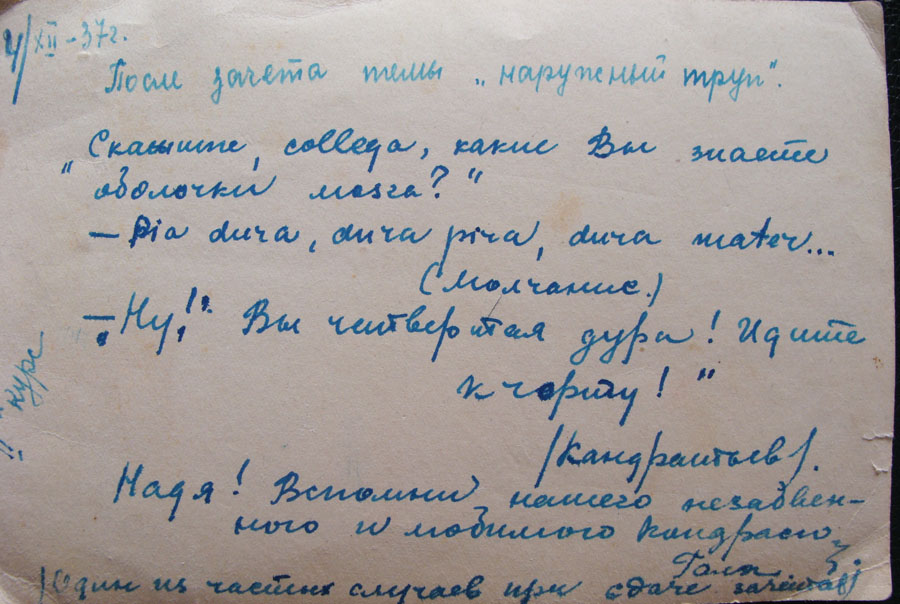 4/XII-37г.
После зачета темы „наружный труп".
„Скажите, collega, какие Вы знаете
оболочки мозга?"
– Pia dura, dura pira, dura mater...
(Молчание.)
– „Ну!" Вы четвертая дура! Идите
к чорту!"
/Кандратьев/.
Надя! Вспомни нашего незабвен-
ного и любимого Кондрасю
Галя
/Один из частых случаев при сдаче зачетов/
II курс